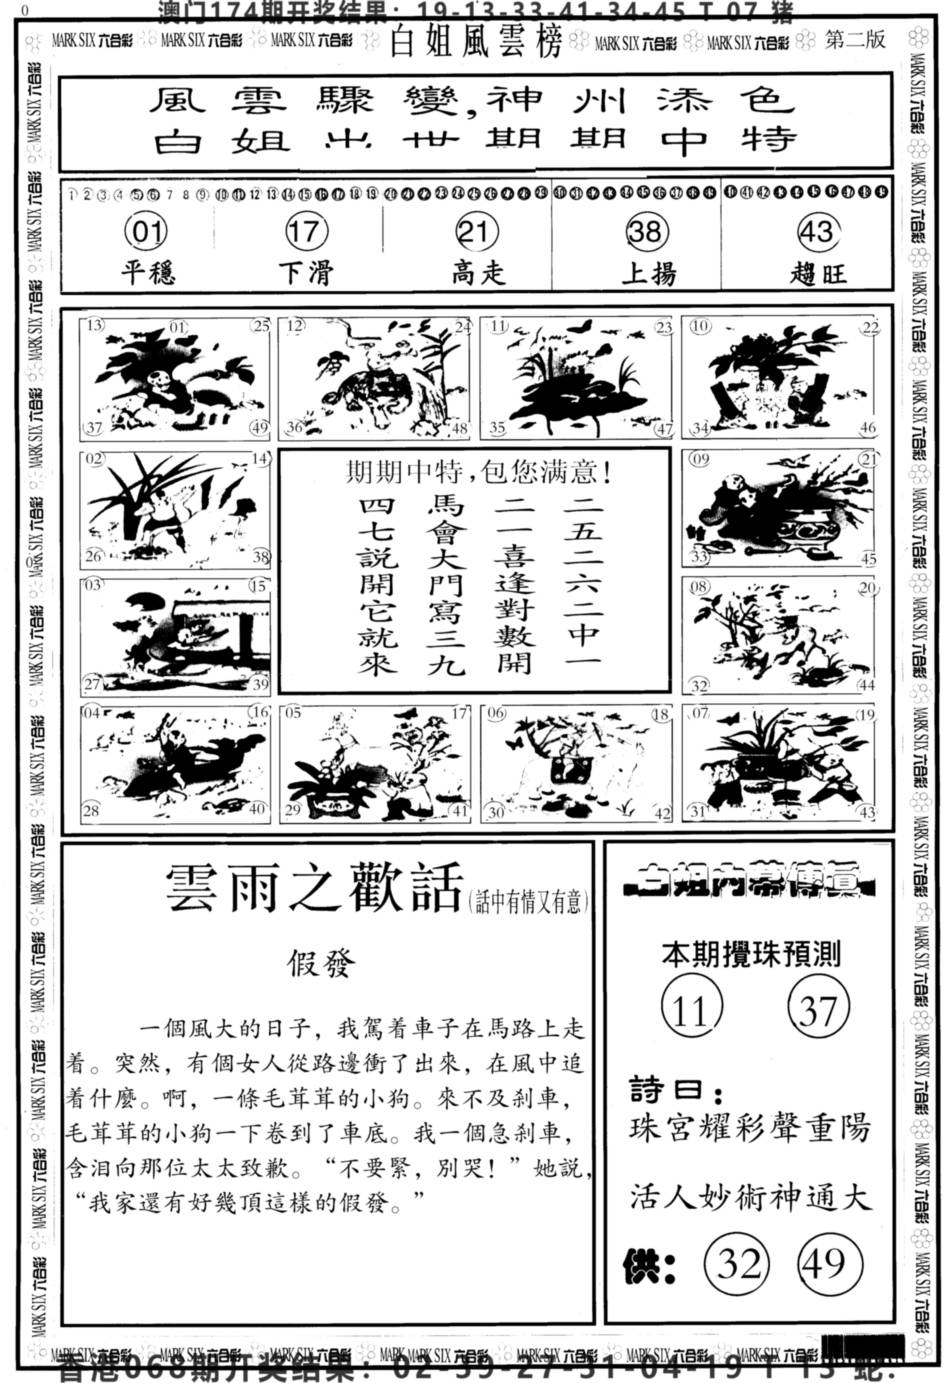 0
澳门174期开奖结果：19-13-33-41-34-45 T 07 猪
MARK SIX 六合彩 MARK SIX 六合彩 MARK SIX 六合彩 白姐風雲榜 MARK SIX 六合彩 MARK SIX 六合彩 第二版
風雲驟變,神州添色
白姐出世期期中特
1 2 3 4 5 6 7 8 9 10 11 12 13 14 15 16 17 18 19 20 21 22 23 24 25 26 27 28 29 30 31 32 33 34 35 36 37 38 39 40 41 42 43 44 45 46 47 48 49
01 17 21 38 43
平穩 下滑 高走 上揚 趨旺
13 01 25 12 24 11 23 10 22
37 49 36 48 35 47 34 46
02 14
26 38
03 15
27 39
期期中特,包您满意!
二五二六二中一
二一喜逢對數開
馬會大門寫三九
四七説開它就來
09 21
33 45
08 20
32 44
04 16 05 17 06 18 07 19
28 40 29 41 30 42 31 43
雲雨之歡話(話中有情又有意)
假發
一個風大的日子，我駕着車子在馬路上走
着。突然，有個女人從路邊衝了出來，在風中追
着什麽。啊，一條毛茸茸的小狗。來不及刹車，
毛茸茸的小狗一下卷到了車底。我一個急刹車，
含泪向那位太太致歉。“不要緊，別哭！”她説，
“我家還有好幾頂這樣的假發。”
白姐内幕傳真
本期攪珠預測
11 37
詩曰：
珠宮耀彩聲重陽
活人妙術神通大
供： 32 49
MARK SIX 六合彩 MARK SIX 六合彩 MARK SIX 六合彩 MARK SIX 六合彩 MARK SIX 六合彩 MARK SIX 六合彩 MARK SIX 六合彩
香港068期开奖结果：02-39-27-31-04-19 T 13 蛇.